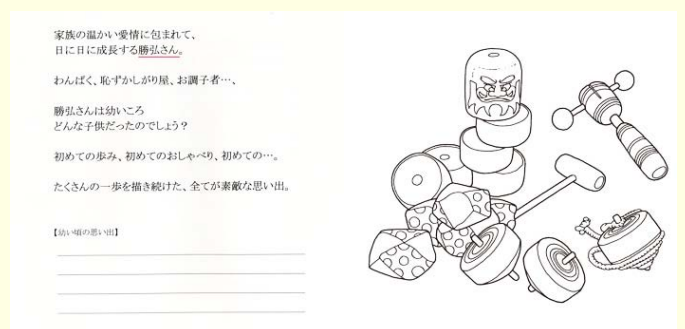 家族の温かい愛情に包まれて、
日に日に成長する勝弘さん。
わんぱく、恥ずかしがり屋、お調子者…、
勝弘さんは幼いころ
どんな子供だったのでしょう？
初めての歩み、初めてのおしゃべり、初めての…。
たくさんの一歩を描き続けた、全てが素敵な思い出。
【幼い頃の思い出】